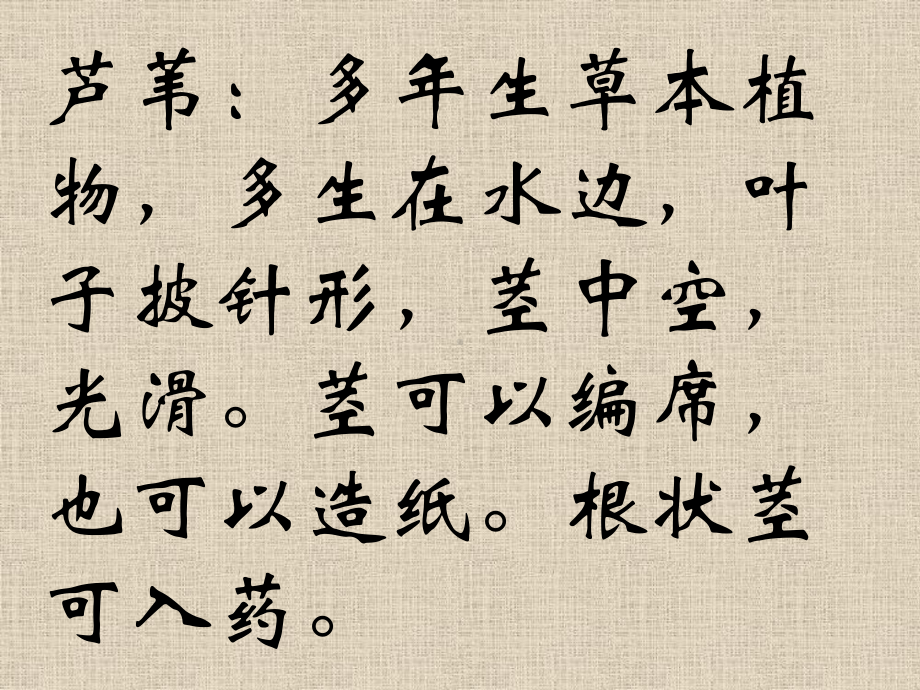 芦苇：多年生草本植
物，多生在水边，叶
子披针形，茎中空，
光滑。茎可以编席，
也可以造纸。根状茎
可入药。